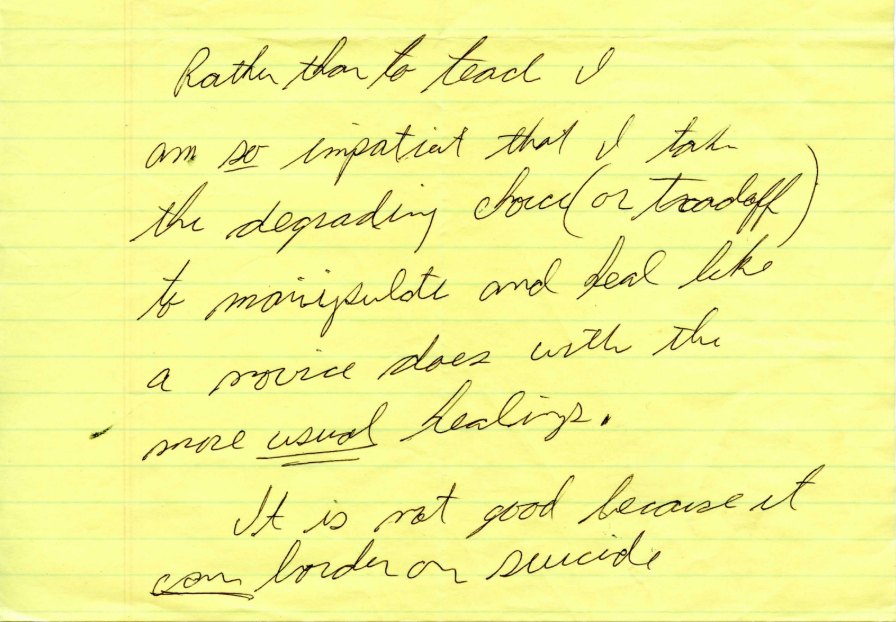 Rather than to teach I
am so impatient that I take
the degrading choice (or tradoff)
to manipulate and heal like
a novice does with the
more usual healings.
It is not good because it
can border on suicide